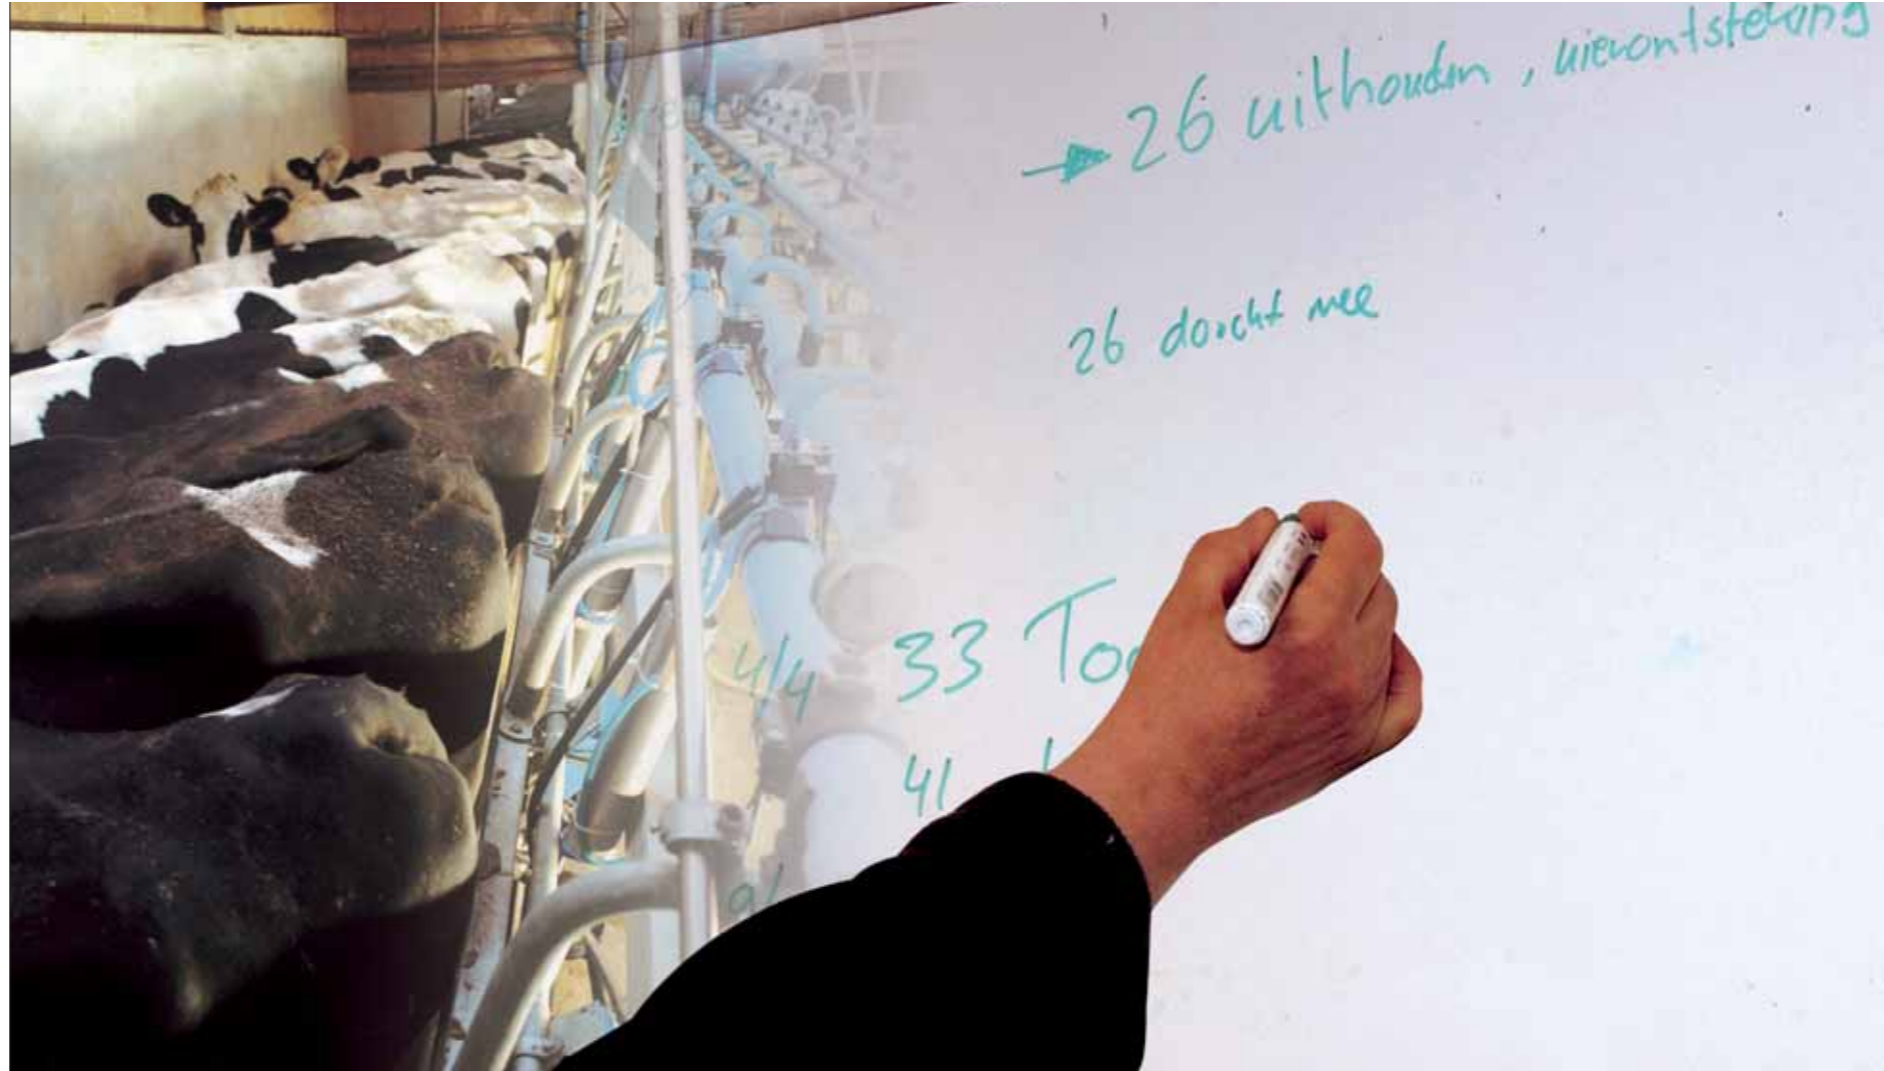 → 26 uithouden, nierontsteking
26 docht mee
4/4 33 To
41
9/